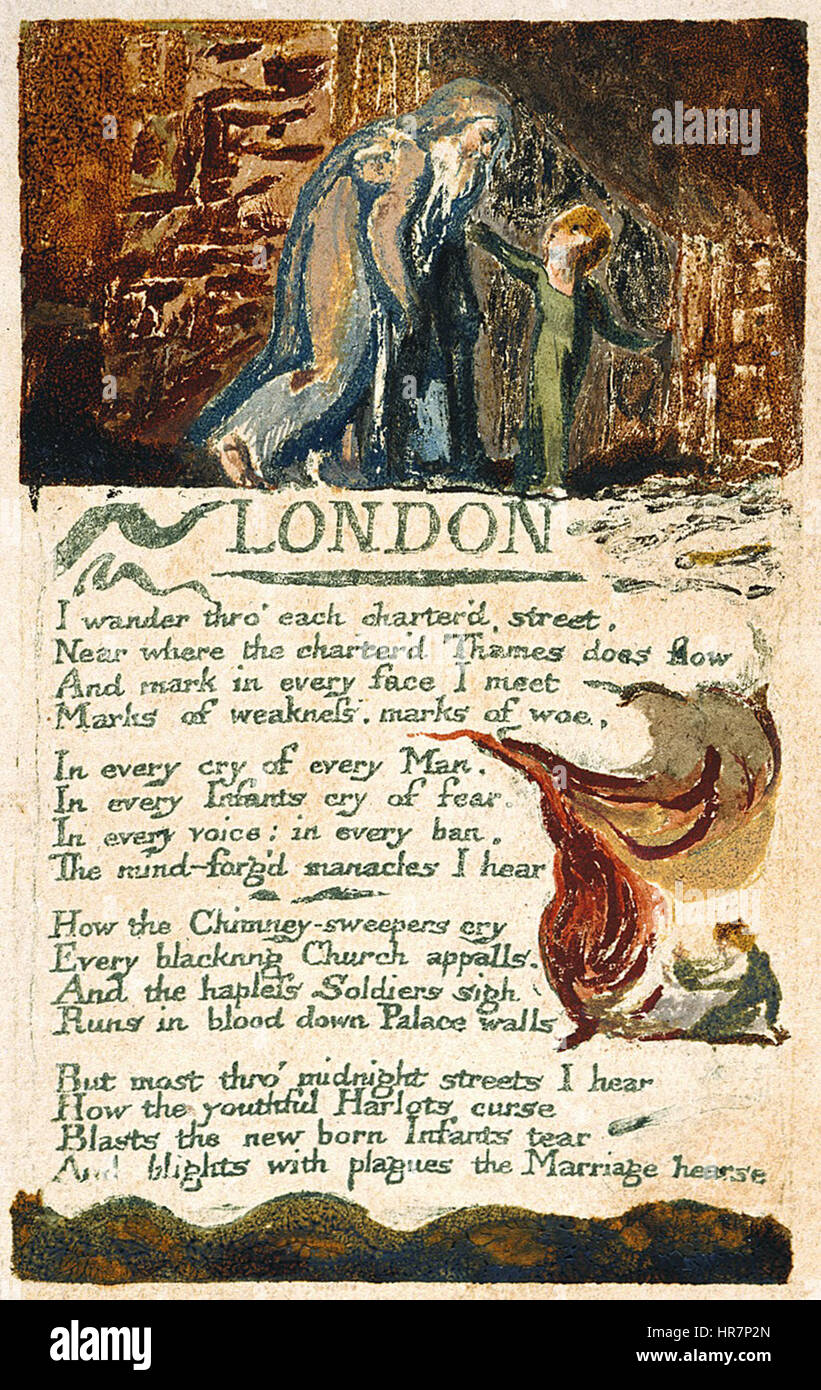 LONDON
I wander thro' each charter'd, street,
Near where the charter'd Thames does flow
And mark in every face I meet
Marks of weakneſs, marks of woe,
In every cry of every Man,
In every Infants cry of fear,
In every voice: in every ban,
The mind-forg'd manacles I hear
How the Chimney-sweepers cry
Every blackning Church appalls,
And the hapleſs Soldiers sigh
Runs in blood down Palace walls
But most thro' midnight streets I hear
How the youthful Harlots curse
Blasts the new born Infants tear
And blights with plagues the Marriage hearse
alamy
alamy stock photo
HR7P2N
www.alamy.com